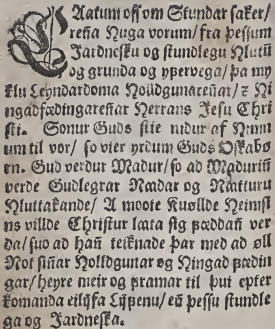 LAatum oss om Stundar saker/
reisa Huga vorum/ fra þessum
Jardnesku og stundlegu Hlutū
og grunda og yþervega/ þa my
klu Leyndardoma Holldgunareñar/ z Hi
ngadfædingareñar Herrans Jesu Chri
sti. Sonur Guds stie nidur af Himn
um til vor/ so vier yrdum Guds Oskabo
rn. Gud verdur Madur/ so ad Maduriñ
verde Gudlegrar Nadar og Natturu
Hluttakande/ A moote Kuollde Heimsi
ns villde Christur lata sig fæddañ ver
da/ suo ad hañ teiknade þar med ad oll
Not siñar Holldgunar og Hingad fædin
gar/ heyre meir og framar til þui epter
komanda eilijfa Lijfenu/ eñ þessu stundle
ga og Jardneska.